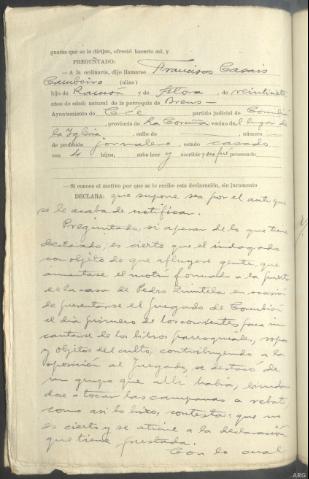 guntas que se le dirijan, ofreció hacerlo así, y
PREGUNTADO:
— A la ordinaria, dijo llamarse Francisco Casais
Cambeiro (alias)
hijo de Ramón y de Flora, de veintisiete
años de edad natural de la parroquia de Brens —
Ayuntamiento de Cee partido judicial de Corcubión
, provincia de La Coruña vecino de
la Iglesia, calle de número
de profesión jornalero, estado casado
con 4 hijos, sabe leer y escribir y procesado.
— Si conoce el motivo por que se le recibe esta declaración, sin juramento
DECLARA: que supone sea por el auto que
se le acaba de notificar.
Preguntado; si apesar de lo que tiene
declarado, es cierto que el indagado
con objeto de que afluyese gente, que
aumentase el motín formado a la puerta
de la casa de Pedro Quintela, en ocasión
de presentarse el Juzgado de Corcubión
el día primero de los corrientes para in-
cautarse de los libros parroquiales, ropas
y objetos del culto, contribuyendo a la
oposición al Juzgado, se destacó de
un grupo que allí había,
a tocar las campanas a rebato
como así lo hizo, contesta: que no
es cierto y se atiene a la declaración
que tiene prestada.
Con lo cual
ARG